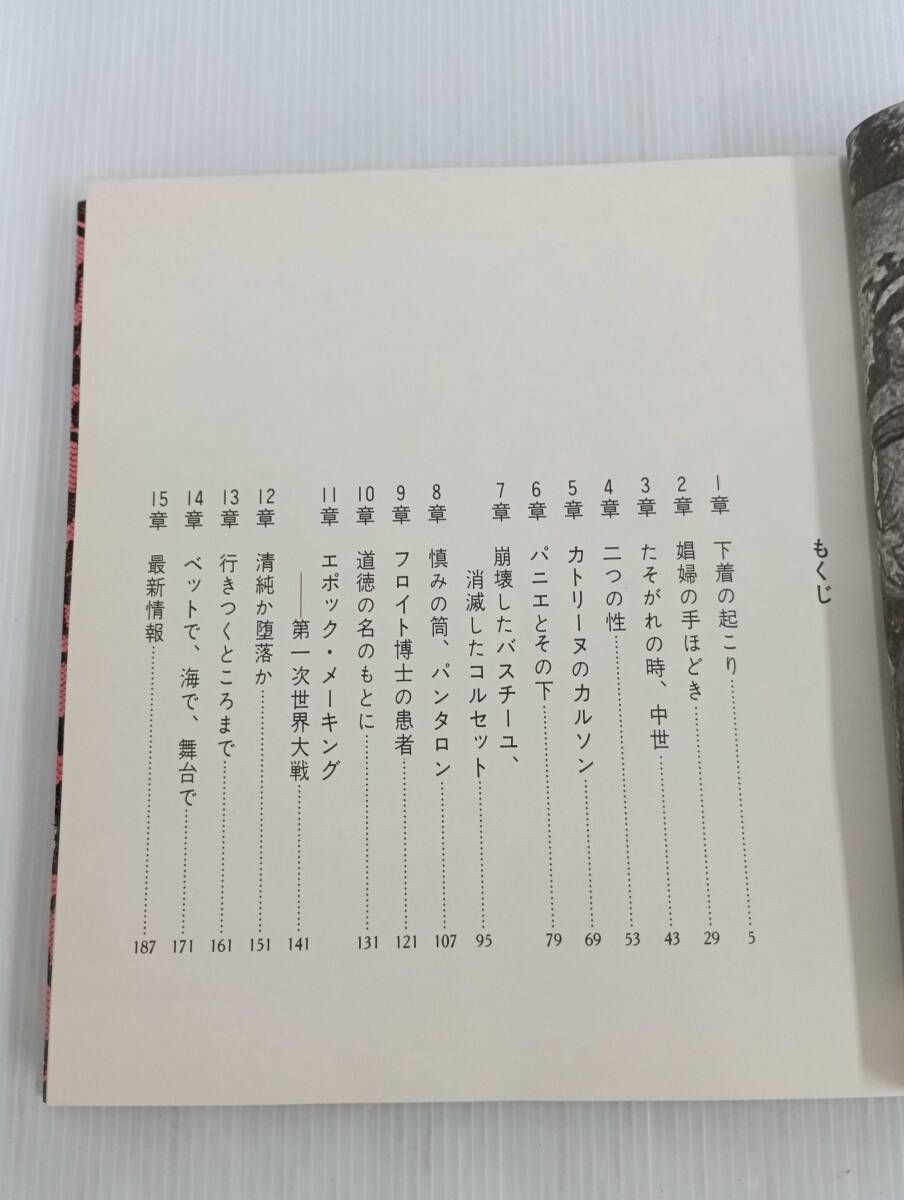 もくじ
1章 下着の起こり……………………5
2章 娼婦の手ほどき……………………29
3章 たそがれの時、中世……………………43
4章 二つの性……………………53
5章 カトリーヌのカルソン……………………69
6章 パニエとその下……………………79
7章 崩壊したバスチーユ、
消滅したコルセット……………………95
8章 慎みの筒、パンタロン……………………107
9章 フロイト博士の患者……………………121
10章 道徳の名のもとに……………………131
11章 エポック・メーキング
——第一次世界大戦……………………141
12章 清純か堕落か……………………151
13章 行きつくところまで……………………161
14章 ベットで、海で、舞台で……………………171
15章 最新情報……………………187